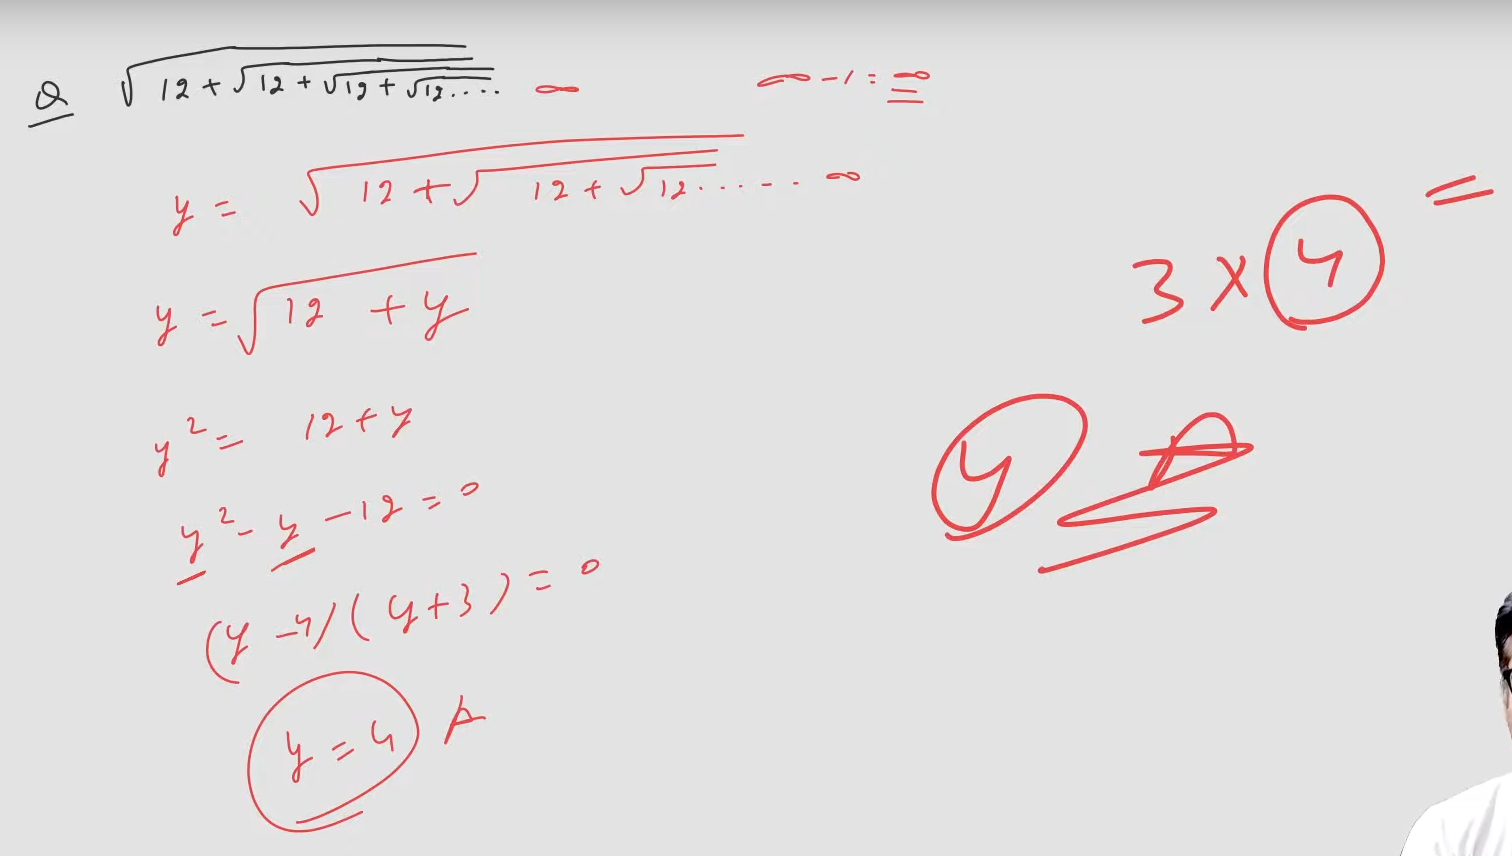 Q √12 + √12 + √12 + √12.... ∞
∞ - 1 = ∞
y = √12 + √12 + √12...... ∞
y = √12 + y
y² = 12 + y
y² - y - 12 = 0
(y - 4)(y + 3) = 0
y = 4 A
3 × 4 =
4 A